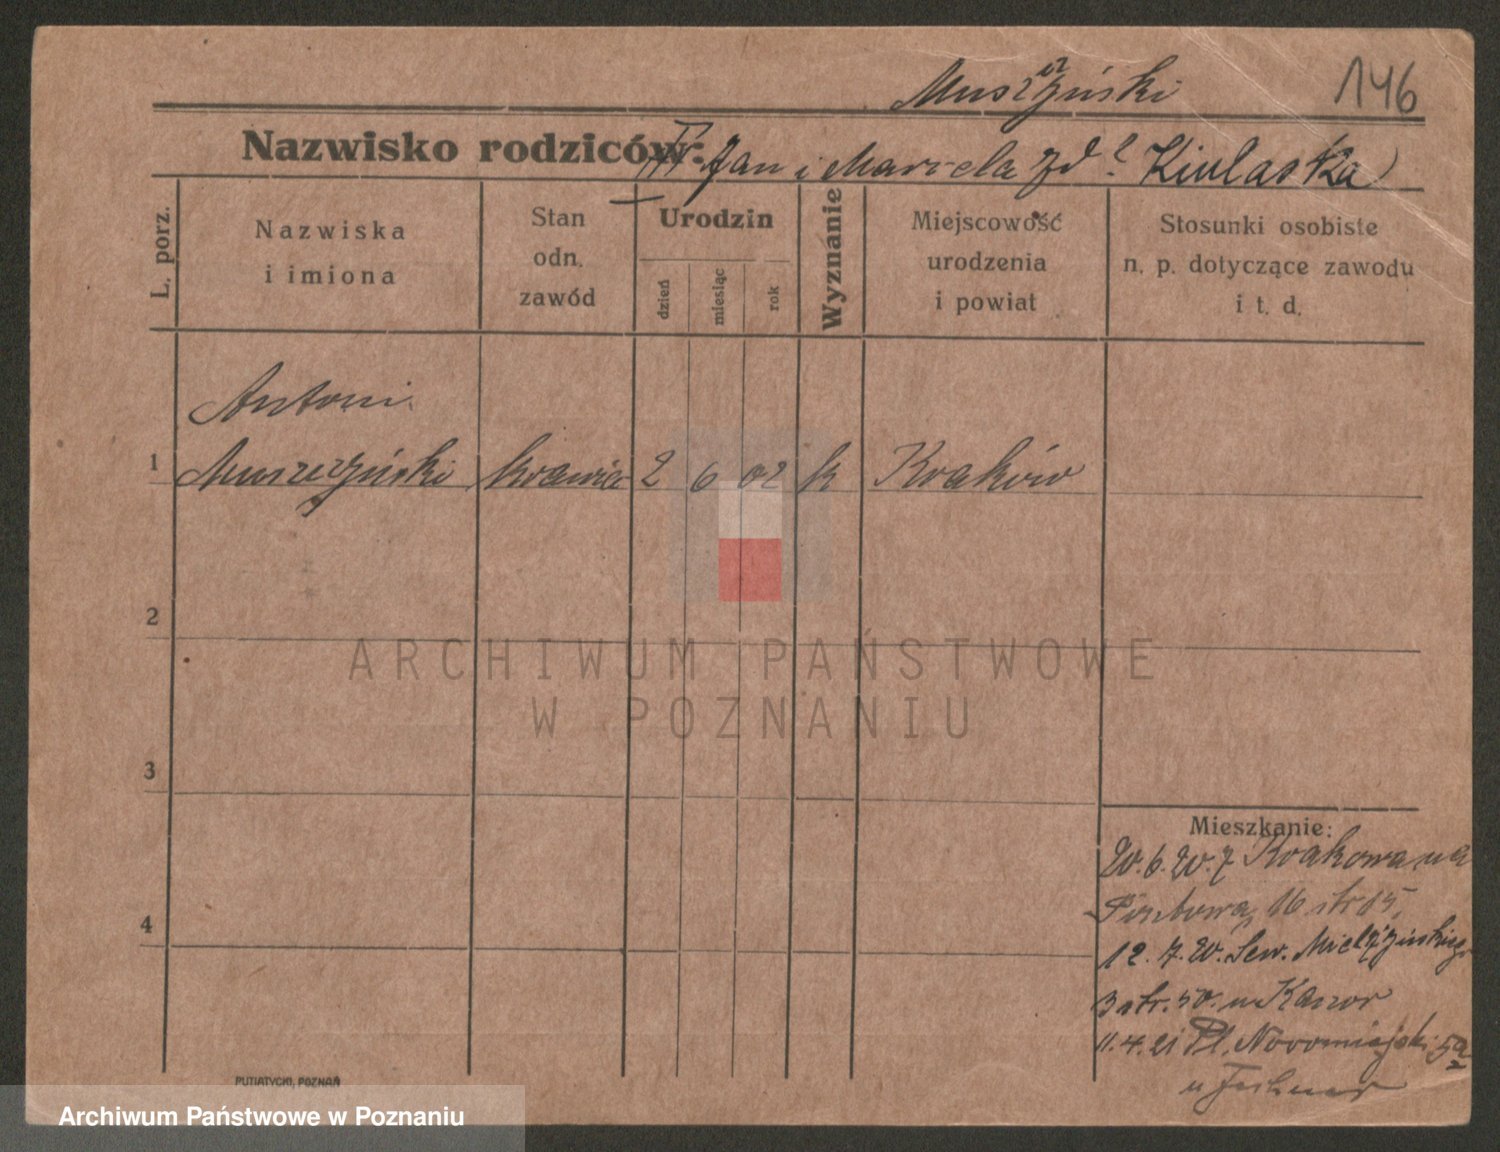 Muszyński
146
Nazwisko rodziców: Jan i Marcela zd? Kiulaska
L. porz.
Nazwiska
i imiona
Stan
odn.
zawód
Urodzin
dzień
miesiąc
rok
Wyznanie
Miejscowość
urodzenia
i powiat
Stosunki osobiste
n. p. dotyczące zawodu
i t. d.
Antoni
1 Muszczyński krawiec 2 6 02 k Kraków
2
3
4
ARCHIWUM PAŃSTWOWE
W POZNANIU
Mieszkanie:
20.6.20. z Krakowa na
16 str 15,
12.7.20. Sew. Mielżyńskiego
3 str. 50. u
11.4.21 Pl. Nowomiejski 5a
u
PUTIATYCKI, POZNAŃ
Archiwum Państwowe w Poznaniu